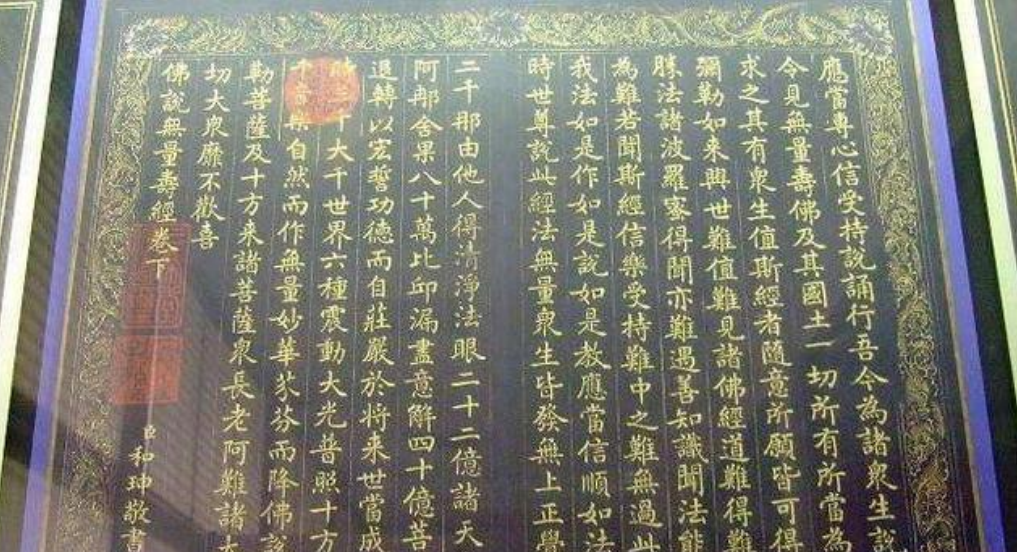 應當專心信受持說誦行吾今為諸衆生說
令見無量壽佛及其國土一切所有所當為
求之其有衆生值斯經者隨意所願皆可得
彌勒如来興世難值難見諸佛經道難得難
勝法諸波羅蜜得聞亦難遇善知識聞法能
為難若聞斯經信樂受持難中之難無過此
我法如是作如是說如是教應當信順如法
時世尊說此經法無量衆生皆發無上正覺
二千那由他人得清淨法眼二十二億諸天
阿那舍果八十萬比邱漏盡意解四十億菩
退轉以宏誓功德而自莊嚴於将来世當成
時三千大千世界六種震動大光普照十方
千音樂自然而作無量妙華芬而降佛說
勒菩薩及十方来諸菩薩衆長老阿難諸大
切大衆靡不歡喜
佛說無量壽經卷下
臣和珅敬書